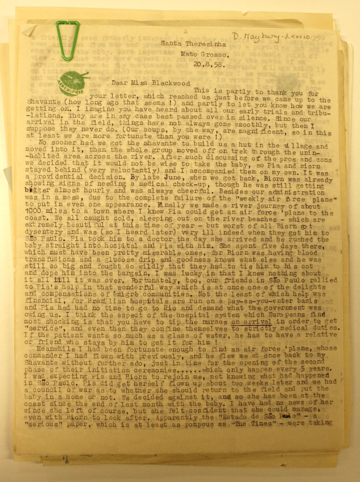 D. Maybury-Lewis
Santa Therezinha
Mato Grosso.
20.8.58.
Dear Miss Blackwood
This is partly to thank you for
your letter, which reached us just before we came up to the
Shavante (how long ago that seems!) and partly to let you know how we are
getting on. I imagine you have heard about all our early trials and tribu-
-lations. They are in any case best passed over in silence. Since our
arrival in the field, things have not always gone smoothly, but then I
suppose they never do. (Our soups, by the way, are magnificent, so in this
at least we are more fortunate than you were!)
No sooner had we got the Shavante to build us a hut in the village and
moved into it, than the whole group moved off on trek through the unin-
-habited area across the river. After much discussing of the pros and cons
we decided that it would not be wise to take the baby, so Pia and Biorn
stayed behind (very reluctantly) and I accompanied them on my own. It was
a providential decision. By late June, when we got back, Biorn was already
showing signs of needing a medical check-up, though he was still getting
bigger almost hourly and was always cheerful. Besides our administration
was in a mess, due to the complete failure of the "weekly air force plane"
to put in even one appearance. Finally we made a river journey of about
1000 miles to a town where I knew Pia could get an air force 'plane to the
coast. We all caught cold, sleeping out on the river beaches - which are
extremely beautiful at this time of year - but worst of all Biorn got
dysentery and was (as I heard later) very ill indeed when they got him to
São Paulo. Pia took him to a doctor the day she arrived and he rushed the
baby straight into hospital and Pia with him. She spent five days there,
which must have been pretty miserable ones, for Biorn was having blood
transfusions and a glucose drip and goodness knows what else and he was
still so big and fought so wildly that they had to tie him to his cot
and dope him into the bargain. I was lucky in that I knew nothing about
it all till it was over. Fortunately, too, our friends in São Paulo rallied
to Pia's help in that wonderful way which is at once one of the delights
and compensations of being compatriots. Not the least of which help was
financial, for Brazilian hospitals are run on a pay-as-you-enter basis
and I had had no time to go to Rio and demand what the government was
owing us. I think the aspect of the hospital system which Europeans find
most shocking is that you have to tip the nurses on arrival in order to get
"service", and even then they confine themselves to strictly medical duties.
if the patient wants so much as a glass of water, he has to have a relative
or friend who stays by him to get it for him.
Meanwhile I had been fortunate enough to find an air force 'plane, whose
commander I had flown with previously, and he flew me back to my
Shavante without further ado, just in time for the opening of the second
phase of their initiation ceremonies......which only happen every 5 years.
I was expecting Pia and Biorn to rejoin me, not knowing what had happened
in São Paulo. Pia did get herself flown up about two weeks later and we had
a council of war as to whether she should return to the field and put the
baby in a home or not. We decided against it, and so she has been at the
coast since the end of last month with the baby. I have had no news of her
since she left of course, but she felt confident that she could manage,
even with Biorn to look after. Apparently the "Estado de São Paulo" - a
"serious" paper, which is at least as pompous as "The Times" - were taking